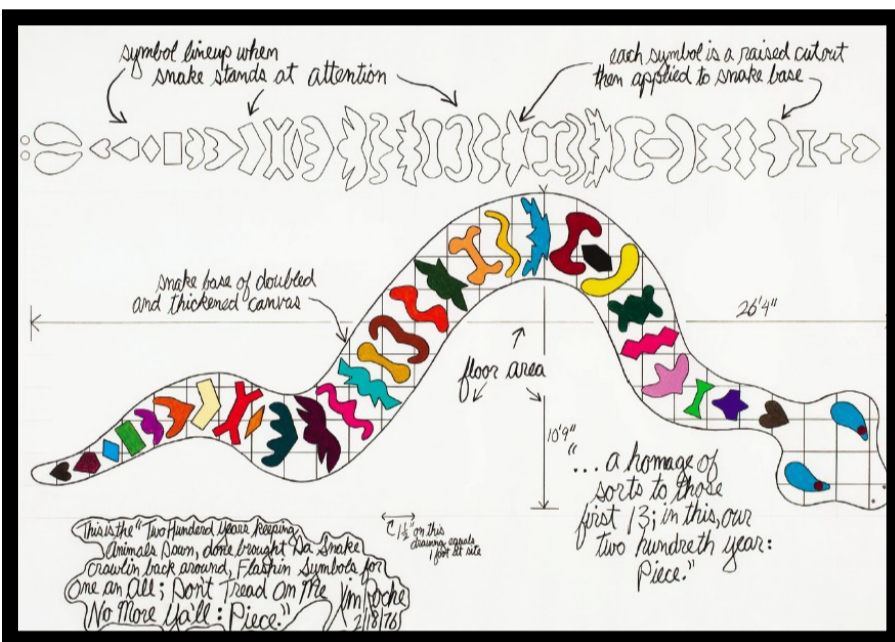 symbol lineup when
snake stands at attention
each symbol is a raised cutout
then applied to snake base
snake base of doubled
and thickened canvas
26'4"
floor area
10'9"
"... a homage of
sorts to those
first 13; in this, our
two hundreth year:
Piece."
1½" on this
drawing equals
1 foot at site
This is the "Two Hunderd Years Keeping
Animals Down, done brought Da Snake
Crawlin back around, Flashin Symbols for
One an All; Don't Tread On Me
No More Ya'll: Piece."
Jim Roche
2/18/76